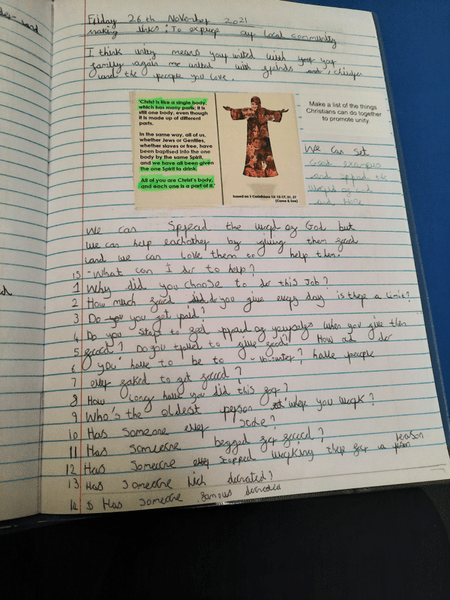 Friday 26th November 2021
making links: To explore our local community
I think unity means your united with your
family again
and the people you love.
'Christ is like a single body,
which has many parts. It is
still one body, even though
it is made up of different
parts.
In the same way, all of us,
whether Jews or Gentiles,
whether slaves or free, have
been baptised into the one
body by the same Spirit,
and we have all been given
the one Spirit to drink.
All of you are Christ's body,
and each one is a part of it.'
Make a list of the things
Christians can do together
to promote unity.
We can Set
Good examples
and spread the
word of god
and hope
We can Spread the word of God but
we can help eachother by giving them food
and we can love them to help them.
15 - What can I do to help?
1 Why did you choose to do this Job?
2 How much food did do you give every day is there a limit?
3 Do you get paid?
4 Do you stay to feel proud of yourself when you give them
5 food? Do you to give food? How
6 you have to be to volunteer? have people
7 ever asked to get food?
8 How long have you did this for?
9 Who's the oldest person where you work?
10 Has Someone ever stole?
11 Has Someone begged for food?
12 Has Someone ever stopped working there for a reason
13 Has Someone rich donated?
14 Has Someone famous donated